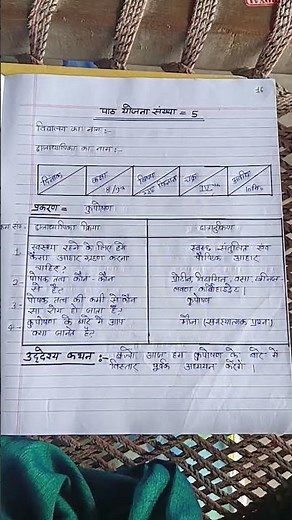 16
पाठ योजना संख्या = 5
विद्यालय का नाम :-
छात्राध्यापिका का नाम :-
दिनांक कक्षा विषय गृह विज्ञान चक्र अवधि
प्रकरण = कुपोषण
क्रम सं. छात्राध्यापिका क्रिया छात्र क्रिया
1- स्वस्थ रहने के लिए हमें स्वच्छ संतुलित एवं
कैसा आहार ग्रहण करना पौष्टिक आहार
चाहिए?
2- पोषक तत्व कौन-कौन प्रोटीन, विटामिन, वसा, खनिज
से हैं? लवण कार्बोहाइड्रेट।
3- पोषक तत्व की कमी से कौन कुपोषण
सा रोग हो जाता है?
4- कुपोषण के बारे में आप मौन (समस्यात्मक प्रश्न)
क्या जानते हैं?
उद्देश्य कथन :- बच्चों आज हम कुपोषण के बारे में
विस्तार पूर्वक अध्ययन करेंगे।